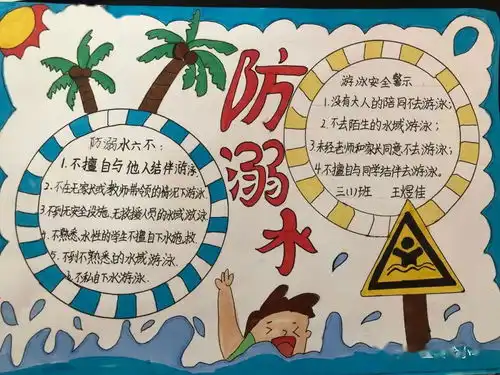 防溺水
防溺水六不：
1.不擅自与他人结伴游泳
2.不在无家长或教师带领的情况下游泳
3.不到无安全设施、无救援人员的水域游泳
4.不熟悉水性的学生不擅自下水施救
5.不到不熟悉的水域游泳
6.不私自下水游泳
游泳安全警示
1.没有大人的陪同不去游泳；
2.不去陌生的水域游泳；
3.未经老师和家长同意不去游泳；
4.不擅自与同学结伴去游泳。
三(1)班 王煜佳